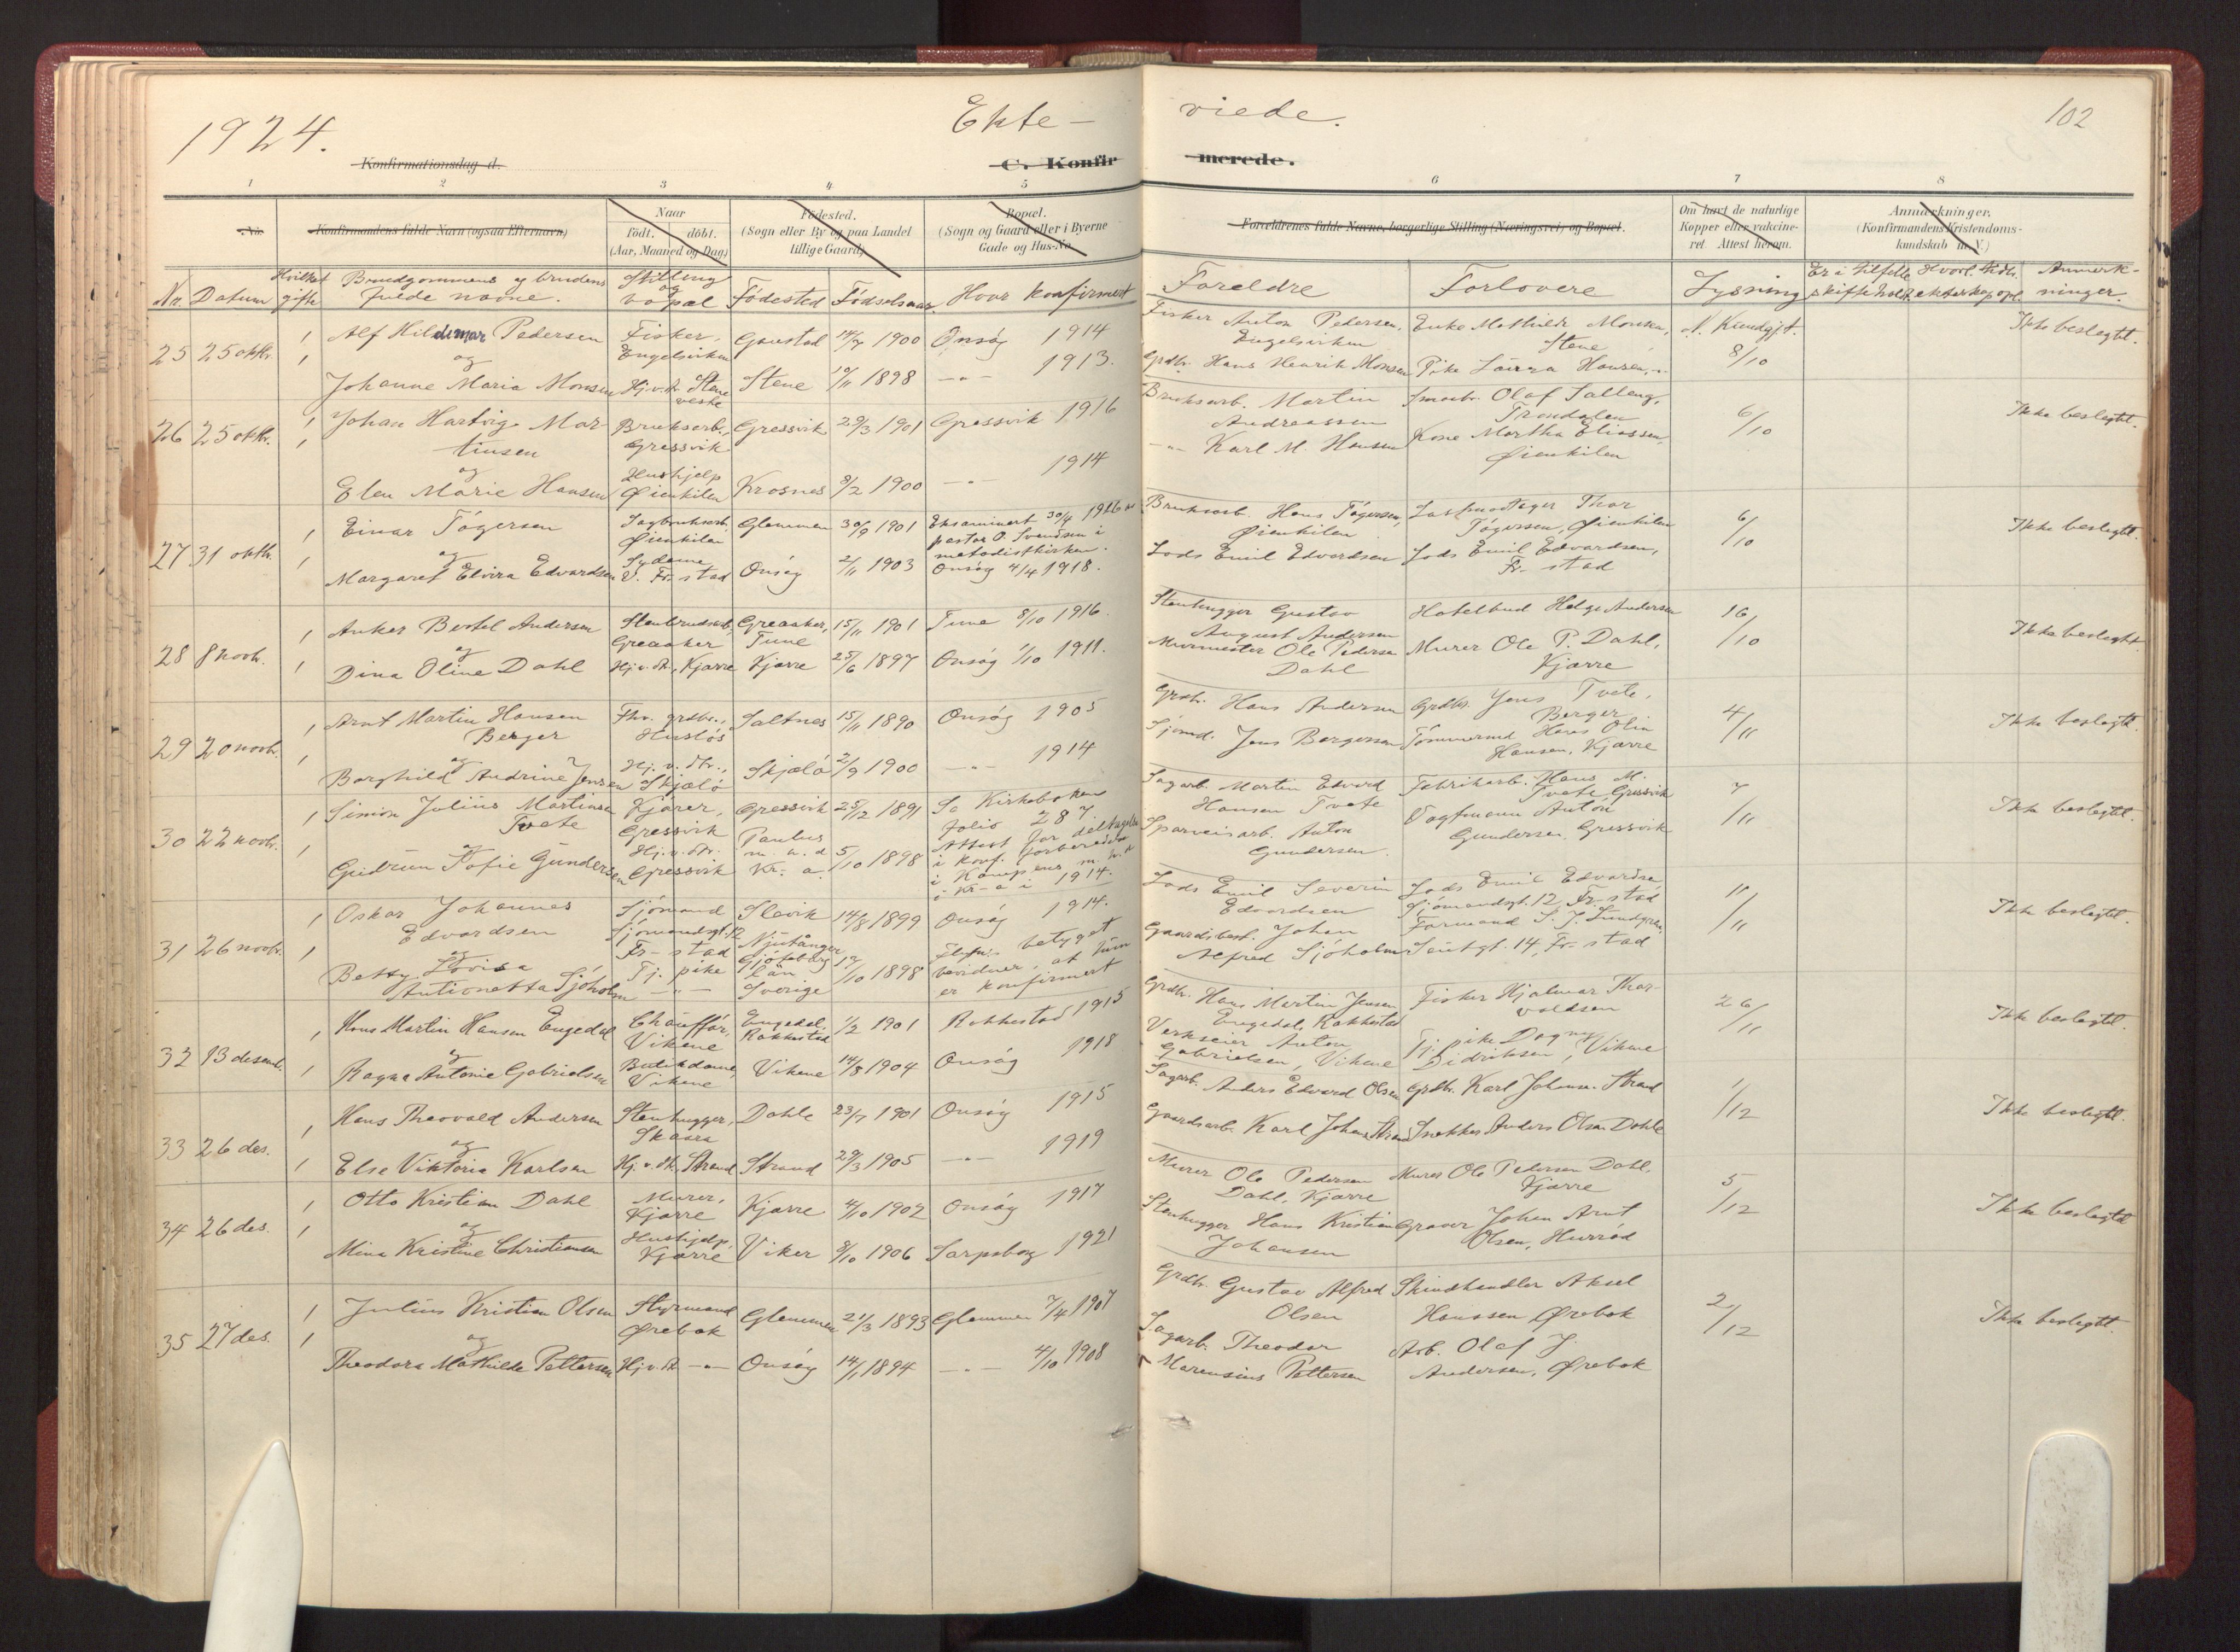 1924.
Ekte- viede.
102
Konfirmationsdag d.
C. Konfir- merede.
1 2 3 4 5 6 7 8
No.
Konfirmandens fulde Navn (ogsaa Efternavn)
Naar
født. døbt.
(Aar, Maaned og Dag)
Fødested.
(Sogn eller By og paa Landet
tillige Gaard)
Bopæl.
(Sogn og Gaard eller i Byerne
Gade og Hus-No.
Forældrenes fulde Navne, borgerlige Stilling (Næringsvei) og Bopæl.
Om havt de naturlige
Kopper eller vakcine-
ret. Attest herom.
Anmærkninger.
(Konfirmandens Kristendoms-
kundskab m. V.)
Nr. Datum Hvilket gifte Brudgommens og brudens fulde navne. Stilling og bopæl Fødested Fødselsaar Hvor konfirmert
Foreldre Forlovere Lysning Er i tilfelle skifte holdt Anmerk-
ninger.
25 25 oktbr. 1 Alf Hildemar Pedersen Fisker, Engelsviken Gaustad 1900 Onsøy 1914
Fisker Anton Pedersen, Engelsviken Enke Mathilde Monsen, Stene N. Kundgjt. 8/10 Ikke beslegtet.
1 og
Johanne Maria Monsen Hj. v. dr. Stene vestre Stene 1898 -"- 1913.
Grdbr. Hans Henrik Monsen Pike Laura Hansen, -"-
26 25 oktbr. 1 Johan Hartvig Mar-
tinsen Bruksarb., Gressvik Gressvik 29/3 1901 Gressvik 1916
Bruksarb. Martin Andreassen Olaf Salleng, Trondalen 6/10 Ikke beslegtet.
1 og
Elen Marie Hansen Hushjelp Øienkilen Krosnes 8/2 1900 -"- 1914
-"- Karl M. Hansen Kone Martha Eliassen, Øienkilen
27 31 oktbr. 1 Einar Tøgersen Sagbruksarb. Øienkilen Glemmen 30/9 1901 Eksaminert 30/4 1926 av
pastor O. Svendsen i
metodistkirken.
Bruksarb. Hans Tøgersen, Øienkilen Thor Tøgersen, Øienkilen 6/10 Ikke beslegtet.
1 og
Margaret Elvira Edvardsen Sydame V. Fr-stad Onsøy 2/11 1903 Onsøy 4/4 1918.
Lods Emil Edvardsen Lods Emil Edvardsen, Fr-stad
28 8 novbr. 1 Anker Bertel Andersen Stenbrudsarb., Greaaker Greaaker, Tune 15/11 1901 Tune 8/10 1916.
Stenhugger Gustav August Andersen Hotelbud Helge Andersen 16/10 Ikke beslegtet.
1 og
Dina Oline Dahl Hj. v. dr., Kjærre Kjærre 25/6 1897 Onsøy 1/10 1911.
Murmester Ole Pedersen Dahl Murer Ole P. Dahl, Kjærre
29 20 novbr. 1 Arnt Martin Hansen
Berger Fhv. grdbr., Husløs Saltnes 15/11 1890 Onsøy 1905
Grdbr. Hans Andersen Grdbr. Jens Tvete, Berger 4/11 Ikke beslegtet.
1 og
Borghild Andrine Jensen Hj. v. dr., Skjælø Skjælø 2/9 1900 -"- 1914
Sjømd. Jens Bergersen Tømmermd Hans Olin Hansen, Kjærre
30 22 novbr. 1 Simon Julius Martinsen
Tvete Kjører, Gressvik Gressvik 25/12 1891 Se Kirkeboken
folio 287
Sagarb. Martin Edvard Hansen Tvete Fabrikarb. Hans M. Tvete, Gressvik 7/11 Ikke beslegtet.
1 og
Gudrun Sofie Gundersen Hj. v. dr. Gressvik Paulus m. h. d Kr.-a. 5/10 1898 Attest for deltagelse
i konf. forberedelse
i Kampens m. h.
i Kr-a i 1914.
Sporveisarb. Anton Gundersen Vogtmann Anton Gundersen, Gressvik
31 26 novbr. 1 Oskar Johannes
Edvardsen Sjømand Sjømandsgt. 12 Fr-stad Slevik 14/8 1899 Onsøy 1914.
Lods Emil Severin Edvardsen Lods Emil Edvardsen Sjømandsgt. 12, Fr-stad 11/11 Ikke beslegtet.
1
Betty Lovisa
Antionetta Sjøholm Tj. pike -"- Njutånger Gjöteborg län Sverige 1898 betyget
bevidner, at hun
er konfirmert
Gaardsbest. Johan Alfred Sjøholm Formand S. J. Lundgren, 14, Fr-stad
32 13 desemb. 1 Hans Martin Hansen Engedal Chauffør, Vikene Engedal, Rakkestad 1/2 1901 Rakkestad 1915
Grdbr. Hans Martin Jensen Engedal, Rakkestad Fisker Hjalmar Thor-
valdsen 26/11 Ikke beslegtet.
1 og
Ragna Antonie Gabrielsen Butikdame, Vikene Vikene 14/8 1904 Onsøy 1918
Verkseier Anton Gabrielsen, Vikene Tj. pike Dagny Didriksen, Vikene
33 26 des. 1 Hans Theovald Andersen Stenhugger, Skaara Dahle 23/7 1901 Onsøy 1915
Sagarb. Anders Edvard Olsen Grdbr. Karl Johans. Strand 1/12 Ikke beslegtet.
1 og
Else Viktoria Karlsen Hj. v. dr. Strand Strand 29/3 1905 -"- 1919
Gaardsarb. Karl Johans. Strand Snekker Anders Olsen Dahle
34 26 des. 1 Otto Kristian Dahl Murer, Kjærre Kjærre 4/10 1902 Onsøy 1917
Murer Ole Pedersen Dahl, Kjærre Murer Ole Pedersen Dahl, Kjærre 5/12 Ikke beslegtet
1 og
Mina Kristine Christiansen Hushjelp, Kjærre Viker 8/10 1906 Sarpsborg 1921
Stenhugger Hans Kristian Johansen Graver Johan Arnt Olsen, Hurrød
35 27 des. 1 Julius Kristian Olsen Styrmand Ørebæk Glemmen 21/3 1893 Glemmen 7/4 1907
Grdbr. Gustav Alfred Olsen Skindhandler Aksel Hanssen Ørebæk 2/12 Ikke beslegtet.
1 og
Theodora Mathilde Pettersen Hj. v. dr. -"- Onsøy 14/1 1894 -"- 4/10 1908
Sagarb. Theodor Marensius Pettersen Arb. Olaf J. Andersen, Ørebæk